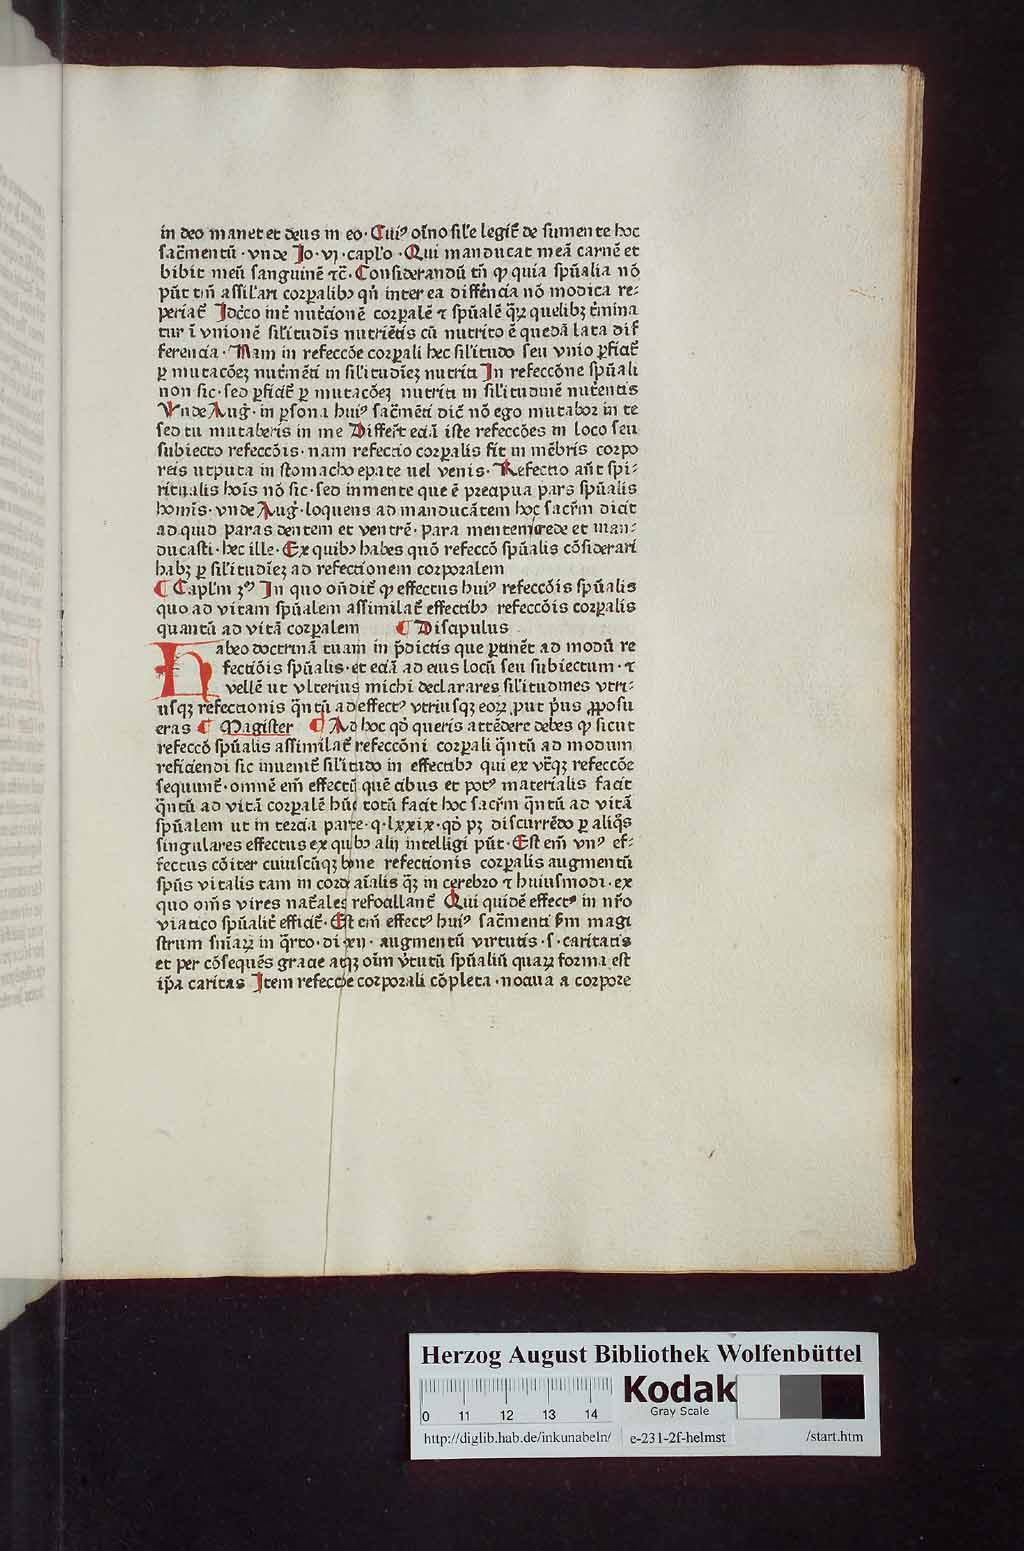 in deo manet et deus in eo · Cuiꝰ oīno sil'e legit̄ de sumente hoc
sac̄mentū · vnde Jo · vj · capl'o · Qui manducat meā carnē et
bibit meū sanguinē ⁊c̄ · Considerandū tn̄ ꝙ quia spūalia nō
pn̄t tm̄ assil'ari corꝑalibꝰ qn̄ inter ea differ̄ncia nō modica re⸗
periat̄ Jdcc̄o int̄ nutc̄ionē corꝑalē ⁊ spūalē q̄ꝫ quelibꝫ t̄mina
tur ī vnionē sil'itudīs nutriētis cū nutrito ē quedā lata dif
ferencia · Nam in refeccōe corꝑali hec sil'itudo seu vnio ꝑficit̄
ꝑ mutacōeꝫ nut̄mēti in sil'itudīeꝫ nutriti Jn refeccōne spūali
non sic · sed ꝑficit̄ ꝑ mutacōeꝫ nutriti in sil'itudinē nut̄entis
Vnde Aug̊ · in ꝑsona huiꝰ sac̄mēti dic̄ nō ego mutabor in te
sed tu mutaberis in me Differt̄ eciā iste refeccōes in loco seu
subiecto refeccōis · nam refectio corꝑalis fit in mēbris corpo
reis utputa in stomacho epate uel venis · Refectio aūt spi⸗
ritualis hoīs nō sic · sed in mente que ē precipua pars spūalis
homīs · vnde Aug̊ · loquens ad manducātem hoc sacr̄m dicit
ad quid paras dentem et ventrē · para mentem crede et man⸗
ducasti · hec ille · Ex quibꝰ habes quō refeccō spūalis cōsiderari
habꝫ ꝑ sil'itudīeꝫ ad refectionem corporalem
¶ Capl'm ꝫꝰ Jn quo on̄dit̄ ꝙ effectus huiꝰ refeccōis spūalis
quo ad vitam spūalem assimilat̄ effectibꝰ refeccōis corꝑalis
quantū ad vitā corꝑalem ¶ Discipulus
Habeo doctrinā tuam in p̄dictis que ꝑtinēt ad modū re
fectiōis spūalis · et eciā ad eius locū seu subiectum · ⁊
vellē ut vlterius michi declarares sil'itudines vtri⸗
usqꝫ refectionis q̄ntū ad effectꝰ vtriusqꝫ eoꝝ put pͥus ꝓposu
eras ¶ Magister ¶ Ad hoc qđ queris attēdere debes ꝙ sicut
refeccō spūalis assimilat̄ refeccōni corꝑali q̄ntū ad modum
reficiendi sic inuenit̄ sil'itudo in effectibꝰ qui ex vt̄qꝫ refeccōe
sequunt̄ · omnē em̄ effectū quē cibus et potꝰ materialis facit
q̄ntū ad vitā corꝑalē hūc totū facit hoc sacr̄m q̄ntū ad vitā
spūalem ut in tercia parte · q · lxxix · qđ pꝫ discurrēdo ꝑ aliq̄s
singulares effectus ex quibꝰ alij intelligi pn̄t · Est em̄ vnꝰ ef⸗
fectus cōiter cuiuscūqꝫ bone refectionis corꝑalis augmentū
spūs vitalis tam in corde aīalis q̄ꝫ in cerebro ⁊ huiusmodi · ex
quo om̄s vires nat̄ales refocillant̄ Qui quidē effectꝰ in nr̄o
viatico spūalit̄ efficit̄ · Est em̄ effectꝰ huiꝰ sac̄menti ẜm magi
strum sn̄iaꝝ in q̄rto · di xij · augmentū virtutis · s · caritatis
et per cōsequēs gracie atqꝫ oīm v̄tutū spūaliū quaꝝ forma est
ip̄a caritas Jtem refeccōe corporali cōpleta · nociua a corpore
Herzog August Bibliothek Wolfenbüttel
0 11 12 13 14
Kodak
Gray Scale
http://diglib.hab.de/inkunabeln/ e-231-2f-helmst /start.htm